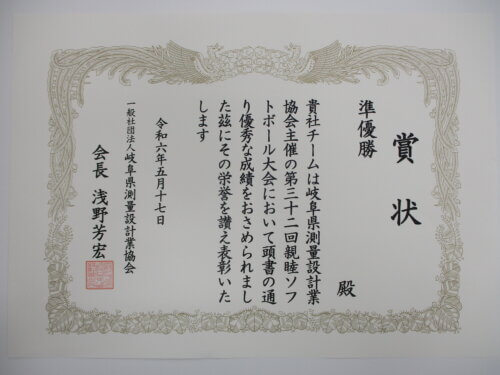 賞状
殿
準優勝
貴社チームは岐阜県測量設計業
協会主催の第三十二回親睦ソフ
トボール大会において頭書の通
り優秀な成績をおさめられまし
た茲にその栄誉を讃え表彰いた
します
令和六年五月十七日
一般社団法人岐阜県測量設計業協会
会長 浅野芳宏